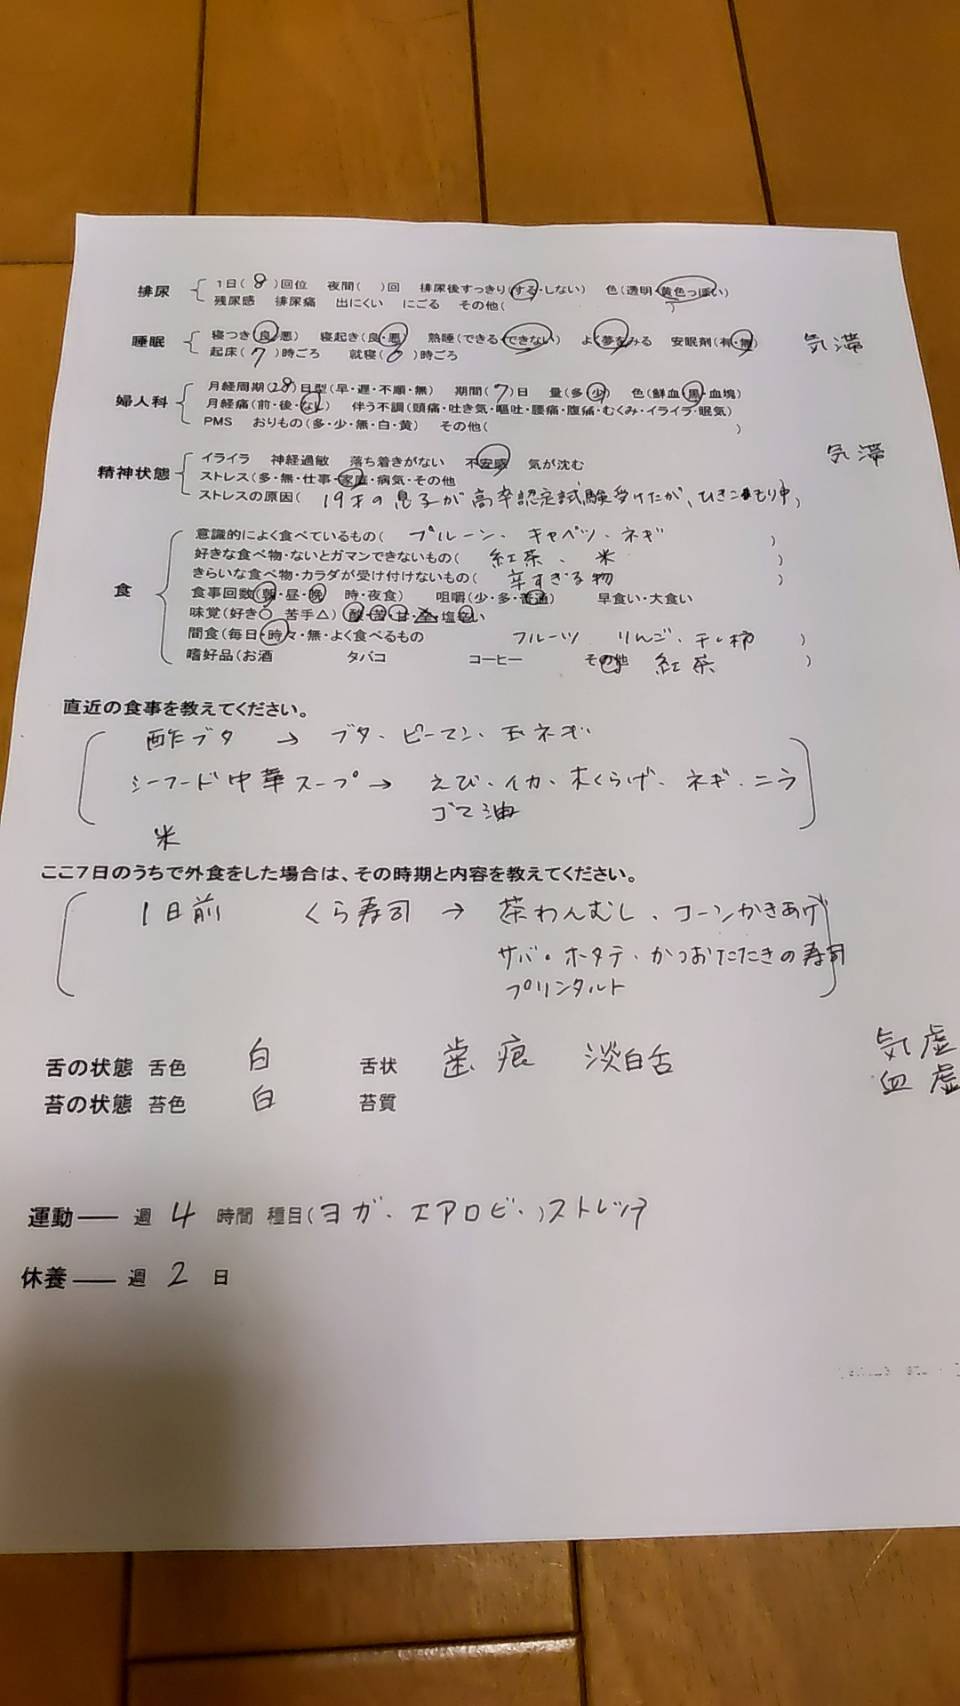 排尿 1日(8)回位 夜間( )回 排尿後すっきり(する・しない) 色(透明・黄色っぽい)
残尿感 排尿痛 出にくい にごる その他( )
睡眠 寝つき(良・悪) 寝起き(良・悪) 熟睡(できる・できない) よく夢をみる 安眠剤(有・無) 気滞
起床(7)時ごろ 就寝(0)時ごろ
婦人科 月経周期(28)日型(早・遅・不順・無) 期間(7)日 量(多・少) 色(鮮血・黒・血塊)
月経痛(前・後・なし) 伴う不調(頭痛・吐き気・嘔吐・腰痛・腹痛・むくみ・イライラ・眠気)
PMS おりもの(多・少・無・白・黄) その他( )
精神状態 イライラ 神経過敏 落ち着きがない 不安感 気が沈む 気滞
ストレス(多・無・仕事・家庭・病気・その他
ストレスの原因( 19才の息子が高卒認定試験受けたが、ひきこもり中)
食 意識的によく食べているもの( プルーン、キャベツ、ネギ )
好きな食べ物・ないとガマンできないもの( 紅茶、米 )
きらいな食べ物・カラダが受け付けないもの( 辛すぎる物 )
食事回数(朝・昼・晩 時・夜食) 咀嚼(少・多・普通) 早食い・大食い
味覚(好き○ 苦手△)(酸・苦・甘・辛・塩辛い
間食(毎日・時々・無・よく食べるもの フルーツ りんご、干し柿 )
嗜好品(お酒 タバコ コーヒー その他 紅茶 )
直近の食事を教えてください。
酢ブタ → ブタ・ピーマン、玉ネギ
シーフード中華スープ → えび、イカ、木くらげ、ネギ、ニラ
ゴマ油
米
ここ7日のうちで外食をした場合は、その時期と内容を教えてください。
1日前 くら寿司 → 茶わんむし、コーンかきあげ
サバ・ホタテ・かつおたたきの寿司
プリンタルト
舌の状態 舌色 白 舌状 歯痕 淡白舌 気虚
苔の状態 苔色 白 苔質 血虚
運動―― 週 4 時間 種目(ヨガ・エアロビ・)ストレッチ
休養―― 週 2 日